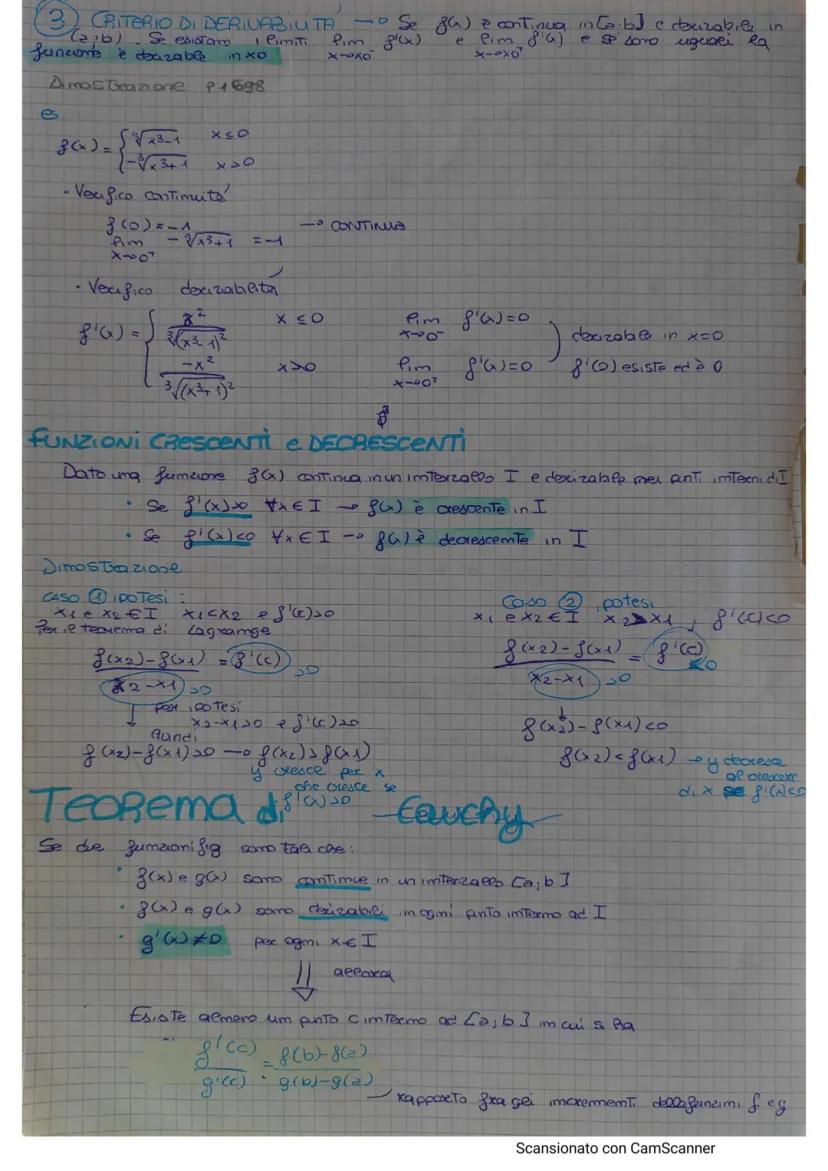 3 CRITERIO DI DERIVABILITÀ → Se f(x) è continua in [a;b] e derivabile in
(a;b). Se esistono i limiti lim x→x0⁻ f'(x) e lim x→x0⁺ f'(x) e se sono uguali la
funzione è derivabile in x0
Dimostrazione p 1698
es
f(x) = { ∛(x³-1) x≤0
{ -∛(x³+1) x>0
• Verifico continuità
f(0) = -1 → CONTINUA
lim x→0⁺ -∛(x³+1) = -1
• Verifico derivabilità
f'(x) = { x² / ∛(x³-1)² x≤0 lim x→0⁻ f'(x)=0 derivabile in x=0
{ -x² / ∛(x³+1)² x>0 lim x→0⁺ f'(x)=0 f'(0) esiste ed è 0
FUNZIONI CRESCENTI e DECRESCENTI
Data una funzione f(x) continua in un intervallo I e derivabile nei punti interni di I
• Se f'(x)>0 ∀x∈I → f(x) è crescente in I
• Se f'(x)<0 ∀x∈I → f(x) è decrescente in I
Dimostrazione
CASO 1 ipotesi:
x1 e x2 ∈ I x1<x2 e f'(c)>0
Per il teorema di Lagrange
f(x2)-f(x1) / x2-x1 >0 = f'(c) >0
per ipotesi
x2-x1>0 e f'(c)>0
quindi
f(x2)-f(x1)>0 → f(x2)>f(x1)
y cresce per x
che cresce se
f'(x)>0
Caso 2 ipotesi
x1 e x2 ∈ I x2>x1, f'(c)<0
f(x2)-f(x1) / x2-x1 >0 = f'(c) <0
f(x2)-f(x1)<0
f(x2)<f(x1) → y decresce
al crescere
di x se f'(x)<0
TEOREMA di Cauchy
Se due funzioni f,g sono tali che:
• f(x) e g(x) sono continue in un intervallo [a;b]
• f(x) e g(x) sono derivabili in ogni punto interno ad I
• g'(x)≠0 per ogni x∈I
⇓ allora
Esiste almeno un punto c interno ad [a;b] in cui si ha
f'(c) / g'(c) = f(b)-f(a) / g(b)-g(a)
rapporto fra gli incrementi della funzioni f e g
Scansionato con CamScanner